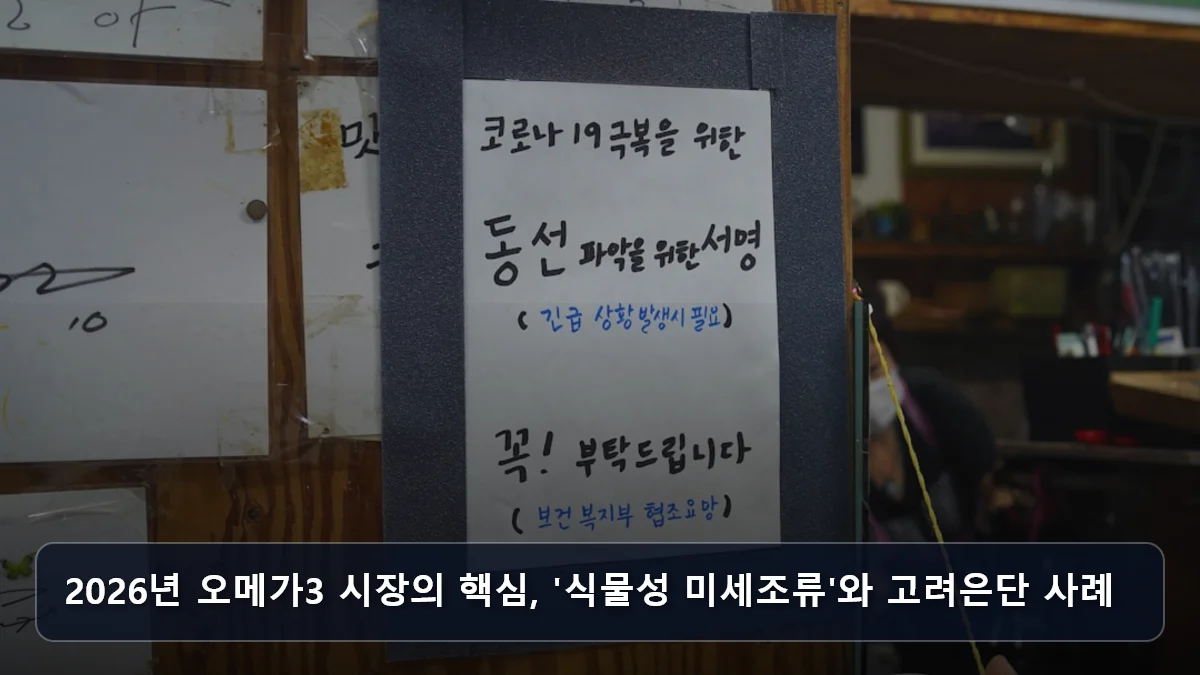 맛
10
코로나 19 극복을 위한
동선 파악을 위한 서명
( 긴급 상황 발생시 필요)
꼭! 부탁드립니다
( 보건복지부 협조요망)
2026년 오메가3 시장의 핵심, '식물성 미세조류'와 고려은단 사례